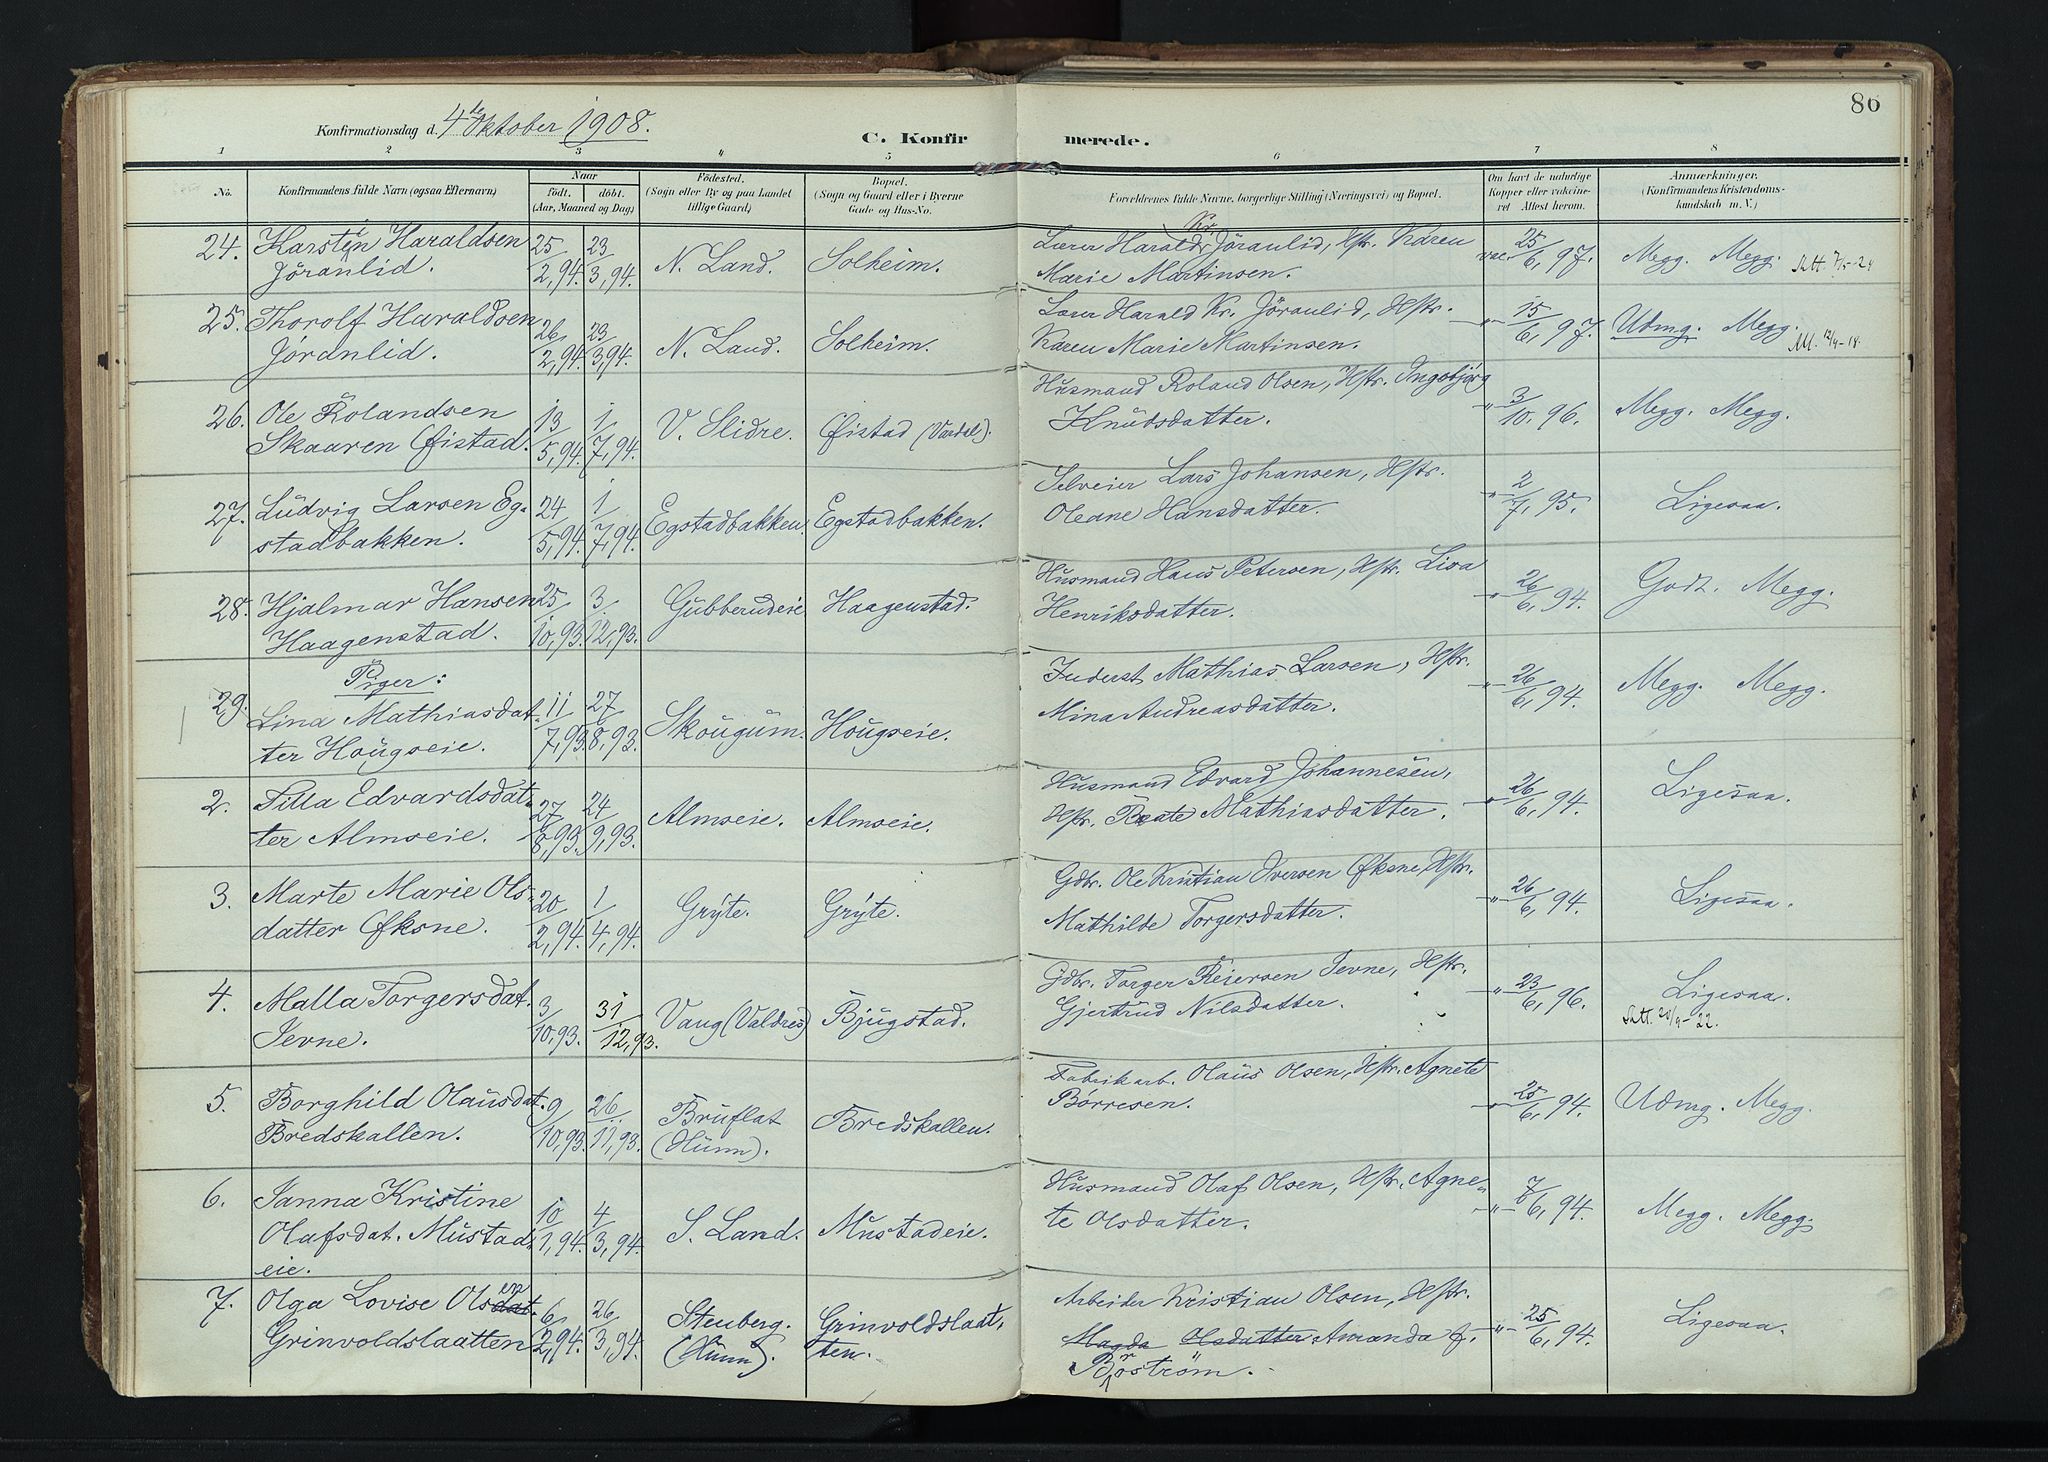 86
Konfirmationsdag d. 4de Oktober 1908.
C. Konfirmerede.
1 2 3 4 5 6 7 8
No.
Konfirmandens fulde Navn (ogsaa Efternavn)
Naar
født. döbt.
(Aar, Maaned og Dag)
Födested.
(Sogn eller By og paa Landet
tillige Gaard)
Bopæl.
(Sogn og Gaard eller i Byerne
Gade og Hus-No.
Forældrenes fulde Navne, borgerlige Stilling (Næringsvei) og Bopæl.
Om havt de naturlige
Kopper eller vakcine-
ret Attest herom.
Anmærkninger.
(Konfirmandens Kristendoms-
kundskab m. V.)
24. Karsten Haraldsen
Jöranlid.
25/2, 94. 23/3, 94. N. Land. Solheim.
Lærer Harald Kr. Jöranlid, Hstr. Karen
Marie Martinsen.
vac. 25/6, 97. Megg. Megg. Utt. 7/5-24
25. Thorolf Haraldsen
Jöranlid.
26/2, 94. 23/3, 94. N. Land. Solheim.
Lærer Harald Kr. Jöranlid, Hstr.
Karen Marie Martinsen.
-"- 15/6, 97. Udmg. Megg.
26. Ole Rolandsen
Skaaren Øistad.
13/5, 94. 1/7, 94. V. Slidre. Øistad (Vardal).
Husmand Roland Olsen, Hstr. Ingebjörg
Knudsdatter.
-"- 3/10, 96. Megg. Megg.
27. Ludvig Larsen Eg-
stadbakken.
24/5, 94. 1/7, 94. Egstadbakken. Egstadbakken.
Selveier Lars Johansen, Hstr.
Oleane Hansdatter.
-"- 2/7, 95. Ligesaa.
28. Hjalmar Hansen
Haagenstad.
25/10, 93. 3/12, 93. Gubberudeie Haagenstad.
Husmand Hans Petersen, Hstr. Lisa
Henriksdatter.
-"- 26/6, 94. Godt. Megg.
Piger:
29. Lina Mathiasdat-
ter Hougseie.
11/7, 93. 27/8, 93. Skougum. Hougseie.
Inderst Mathias Larsen, Hstr.
Mina Andreasdatter.
-"- 26/6, 94. Megg. Megg.
2. Tilla Edvardsdat-
ter Almseie.
27/8, 93. 24/9, 93. Almseie. Almseie.
Husmand Edvard Johannesen,
Hstr. Beate Mathiasdatter.
-"- 26/6, 94. Ligesaa.
3. Marte Marie Ols-
datter Øksne.
20/2, 94. 1/4, 94. Grÿte. Grÿte.
Gdbr. Ole Kristian Iversen Øksne, Hstr.
Mathilde Torgersdatter.
-"- 26/6, 94. Ligesaa.
4. Malla Torgersdat.
Jevne.
3/10, 93. 31/12, 93. Vang (Valdres) Bjugstad.
Gdbr. Torger Reiersen Jevne, Hstr.
Gjertrud Nilsdatter.
-"- 23/6, 96. Ligesaa.
Utt. 20/9-22.
5. Borghild Olausdat.
Bredskallen.
9/10, 93. 26/11, 93. Bruflat
(Hunn).
Bredskallen.
Fabrikarb. Olaus Olsen, Hstr. Agnete
Börresen.
-"- 25/6, 94. Udmg. Megg.
6. Janna Kristine
Olafsdat. Mustad-
eie.
10/1, 94. 4/3, 94. S. Land. Mustadeie.
Husmand Olaf Olsen, Hstr. Agne-
te Olsdatter.
-"- 7/6, 94. Megg. Megg.
7. Olga Lovise Olsdat. en
Grinvoldslaatten
6/2, 94. 26/3, 94. Stenberg.
(Hunn).
Grinvoldslaat-
ten.
Arbeider Kristian Olsen, Hstr.
Magda Olsdatter Amanda f.
Börström.
-"- 25/6, 94. Ligesaa.